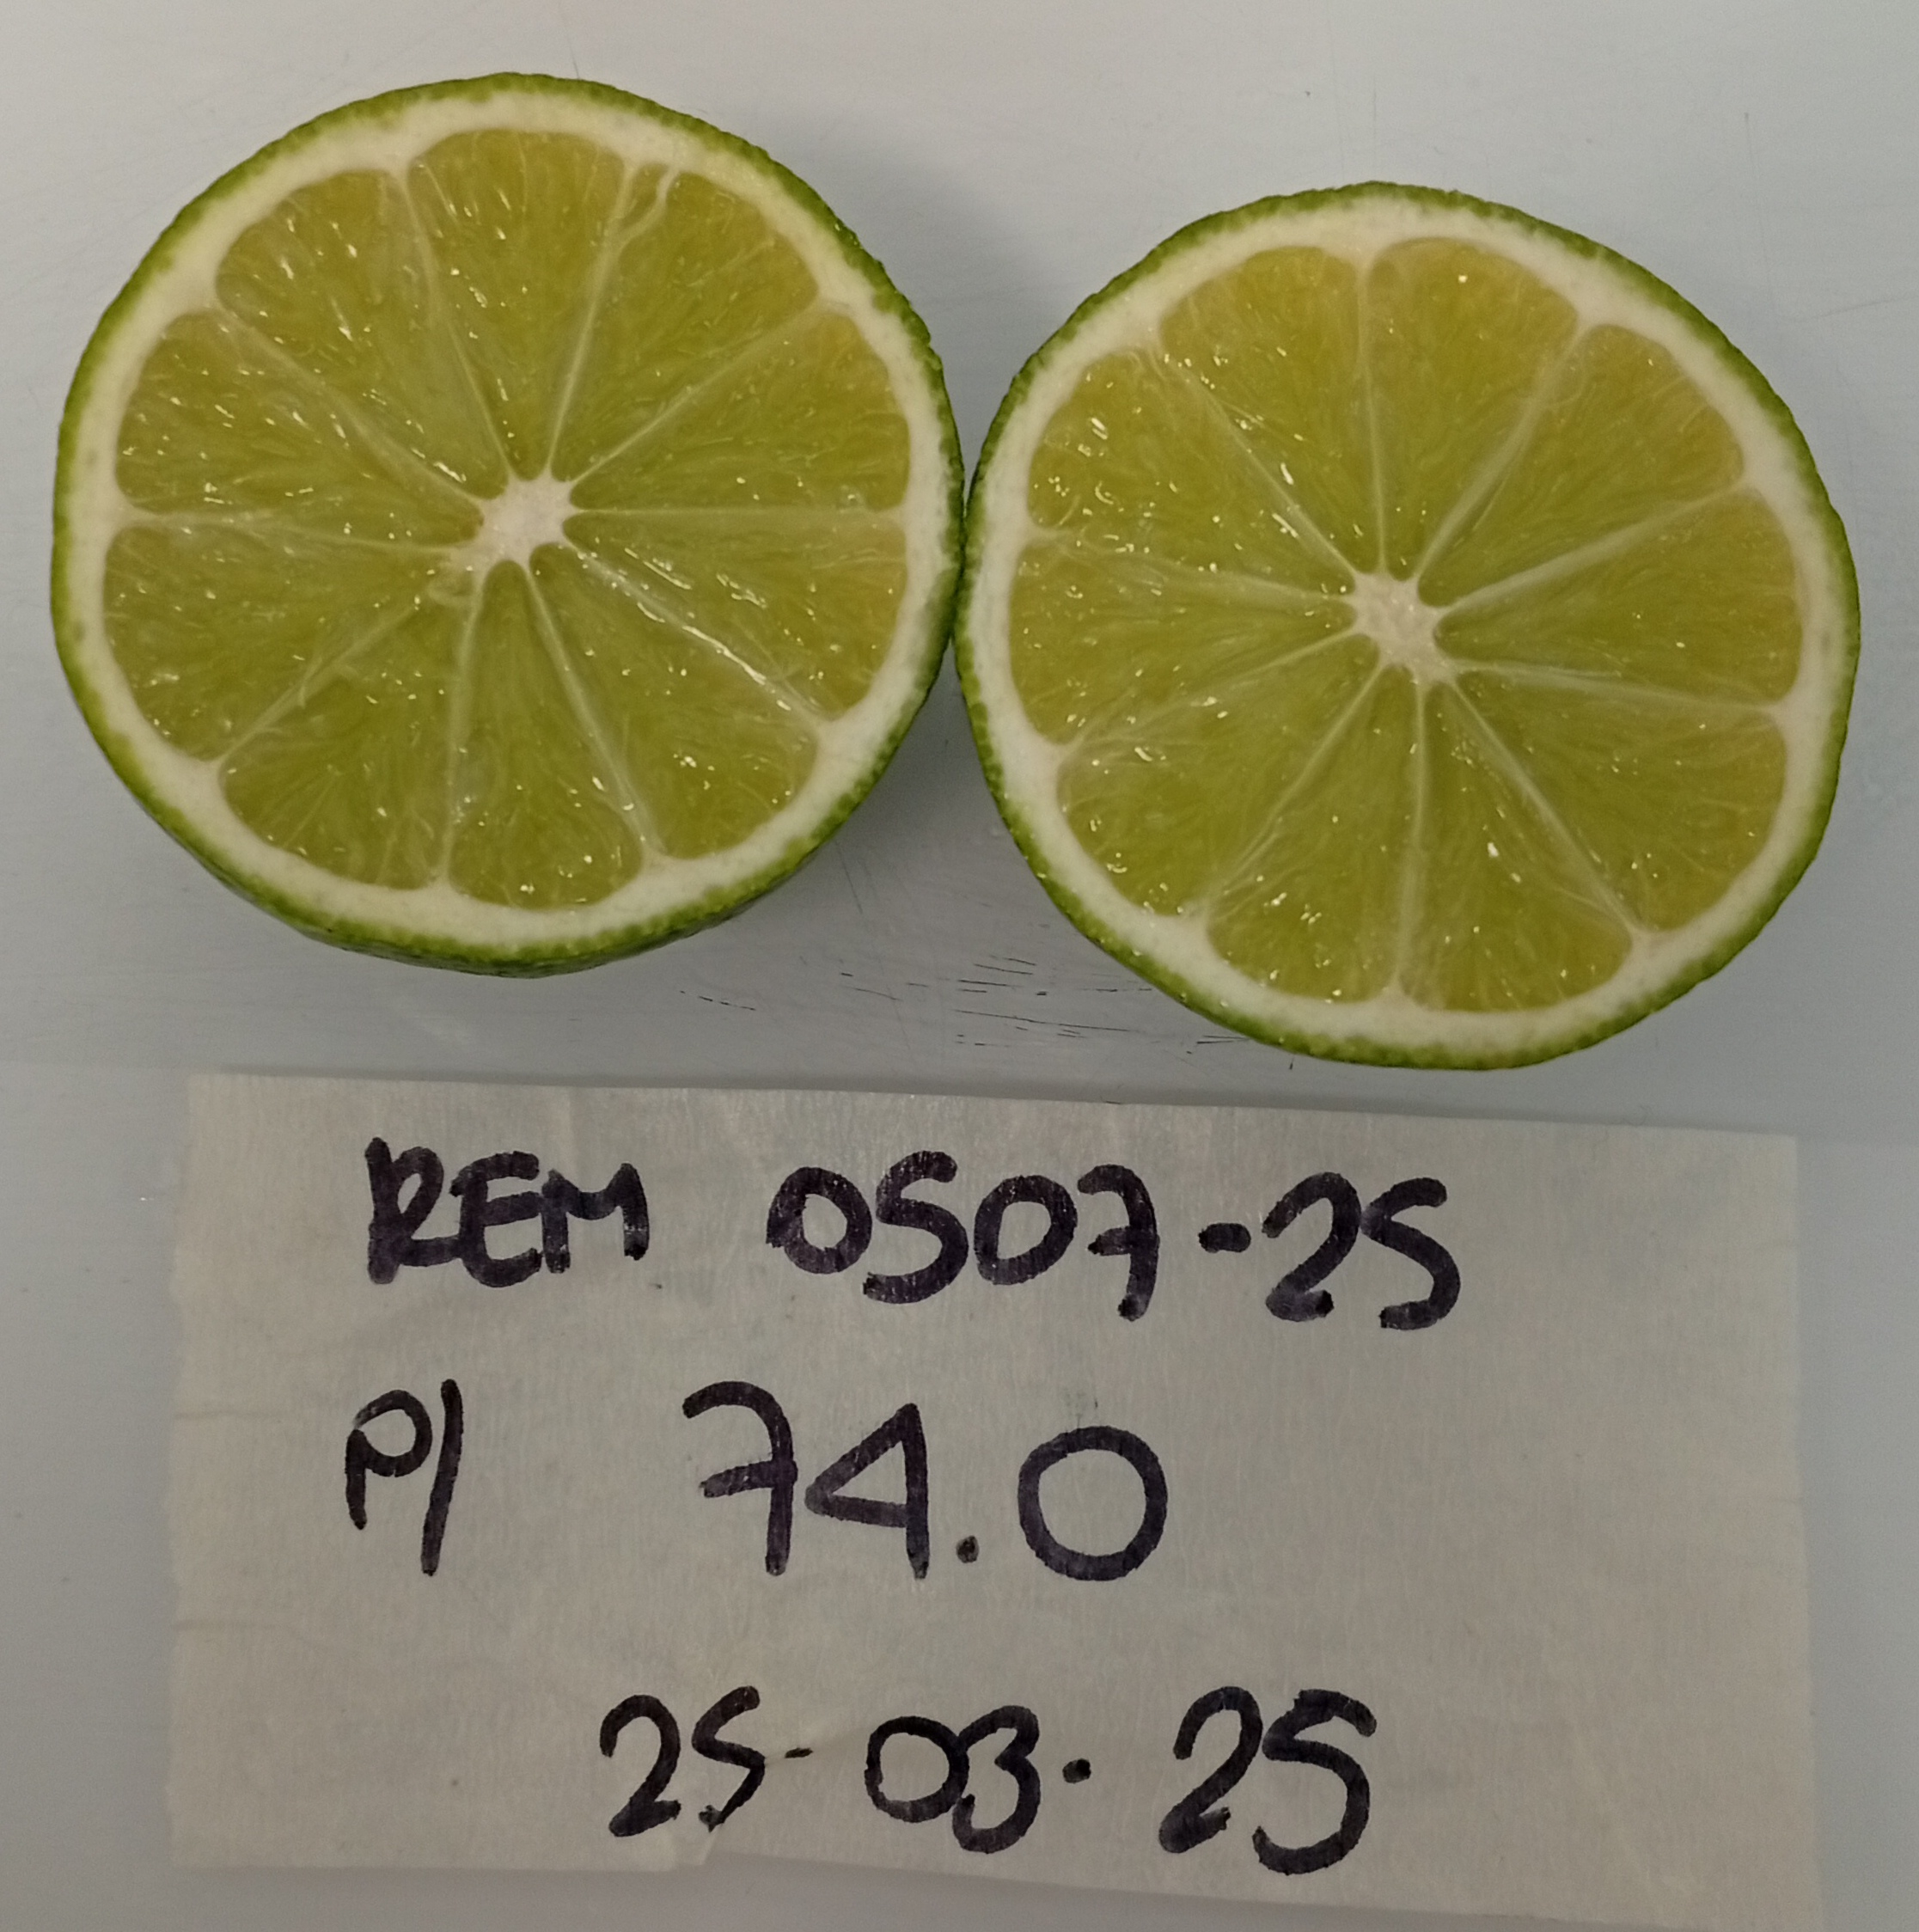 REM 0507-25
P/ 74.0
25-03-25